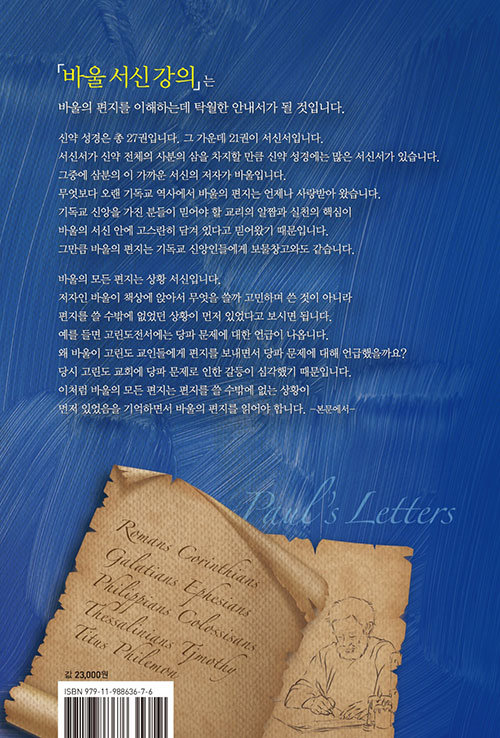 「바울 서신 강의」는
바울의 편지를 이해하는데 탁월한 안내서가 될 것입니다.
신약 성경은 총 27권입니다. 그 가운데 21권이 서신서입니다.
서신서가 신약 전체의 사분의 삼을 차지할 만큼 신약 성경에는 많은 서신서가 있습니다.
그중에 삼분의 이 가까운 서신의 저자가 바울입니다.
무엇보다 오랜 기독교 역사에서 바울의 편지는 언제나 사랑받아 왔습니다.
기독교 신앙을 가진 분들이 믿어야 할 교리의 알짬과 실천의 핵심이
바울의 서신 안에 고스란히 담겨 있다고 믿어왔기 때문입니다.
그만큼 바울의 편지는 기독교 신앙인들에게 보물창고와도 같습니다.
바울의 모든 편지는 상황 서신입니다.
저자인 바울이 책상에 앉아서 무엇을 쓸까 고민하며 쓴 것이 아니라
편지를 쓸 수밖에 없었던 상황이 먼저 있었다고 보시면 됩니다.
예를 들면 고린도전서에는 당파 문제에 대한 언급이 나옵니다.
왜 바울이 고린도 교인들에게 편지를 보내면서 당파 문제에 대해 언급했을까요?
당시 고린도 교회에 당파 문제로 인한 갈등이 심각했기 때문입니다.
이처럼 바울의 모든 편지는 편지를 쓸 수밖에 없는 상황이
먼저 있었음을 기억하면서 바울의 편지를 읽어야 합니다. -본문에서-
Paul's Letters
Romans Corinthians
Galatians Ephesians
Philippians Colossisans
Thessalinians Timothy
Titus Philemon
값 23,000원
ISBN 979-11-988636-7-6